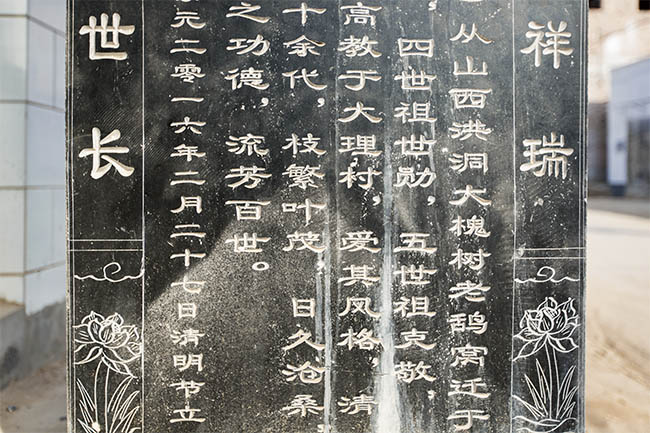 祥瑞
从山西洪洞大槐树老鸹窝迁于
，四世祖世勋，五世祖克敬，
高教于大理村，爱其风格，清
十余代，枝繁叶茂，日久沧桑，
之功德，流芳百世。
元二零一六年二月二十七日清明节立
世长